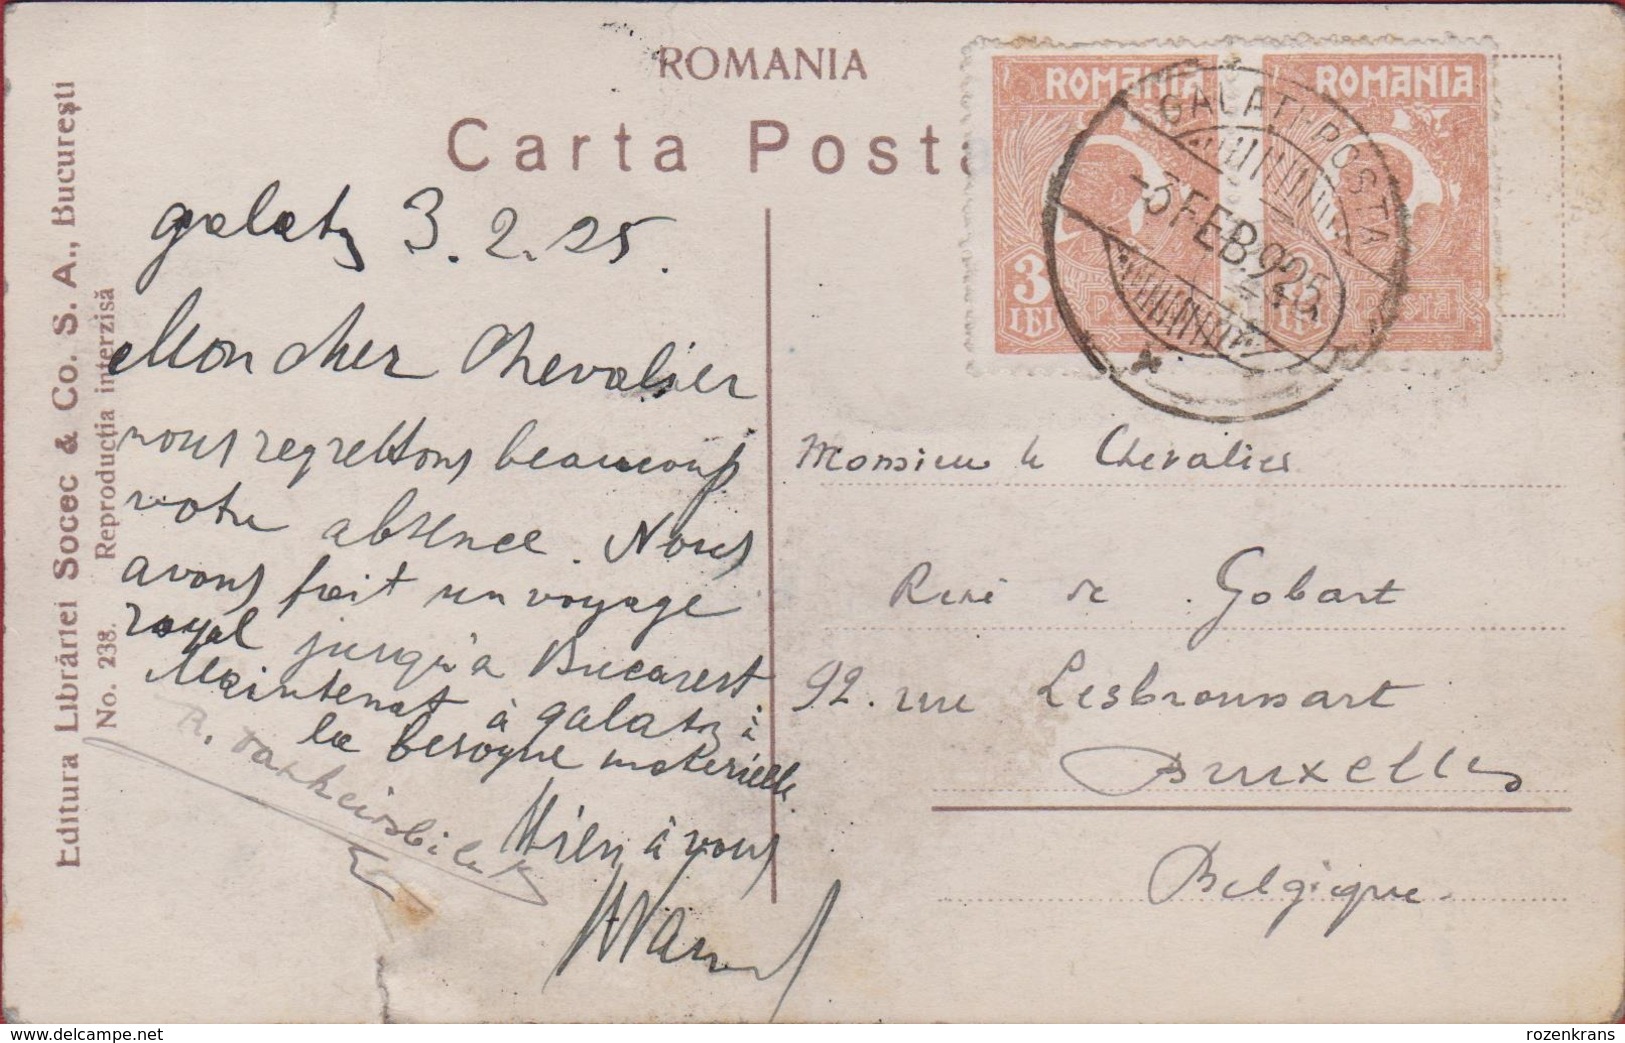 ROMANIA
Carta Posta
Editura Librăriei Socec & Co. S. A., Bucureşti
No. 238. Reproducţia interzisă
ROMANIA
3
LEI
POSTA
ROMANIA
LEI
POSTA
GALATI-POSTA
-3 FEB. 925
galatz 3.2.25.
Mon cher Chevalier
nous regrettons beaucoup
votre absence. Nous
avons fait un voyage
royal jusqu'à Bucarest
Maintenat à galatz :
la besogne materielle.
Bien à vous
Monsieur le Chevalier
René de Gobart
92. rue Lesbroussart
Bruxelles
Belgique.
delcampe.net
rozenkrans